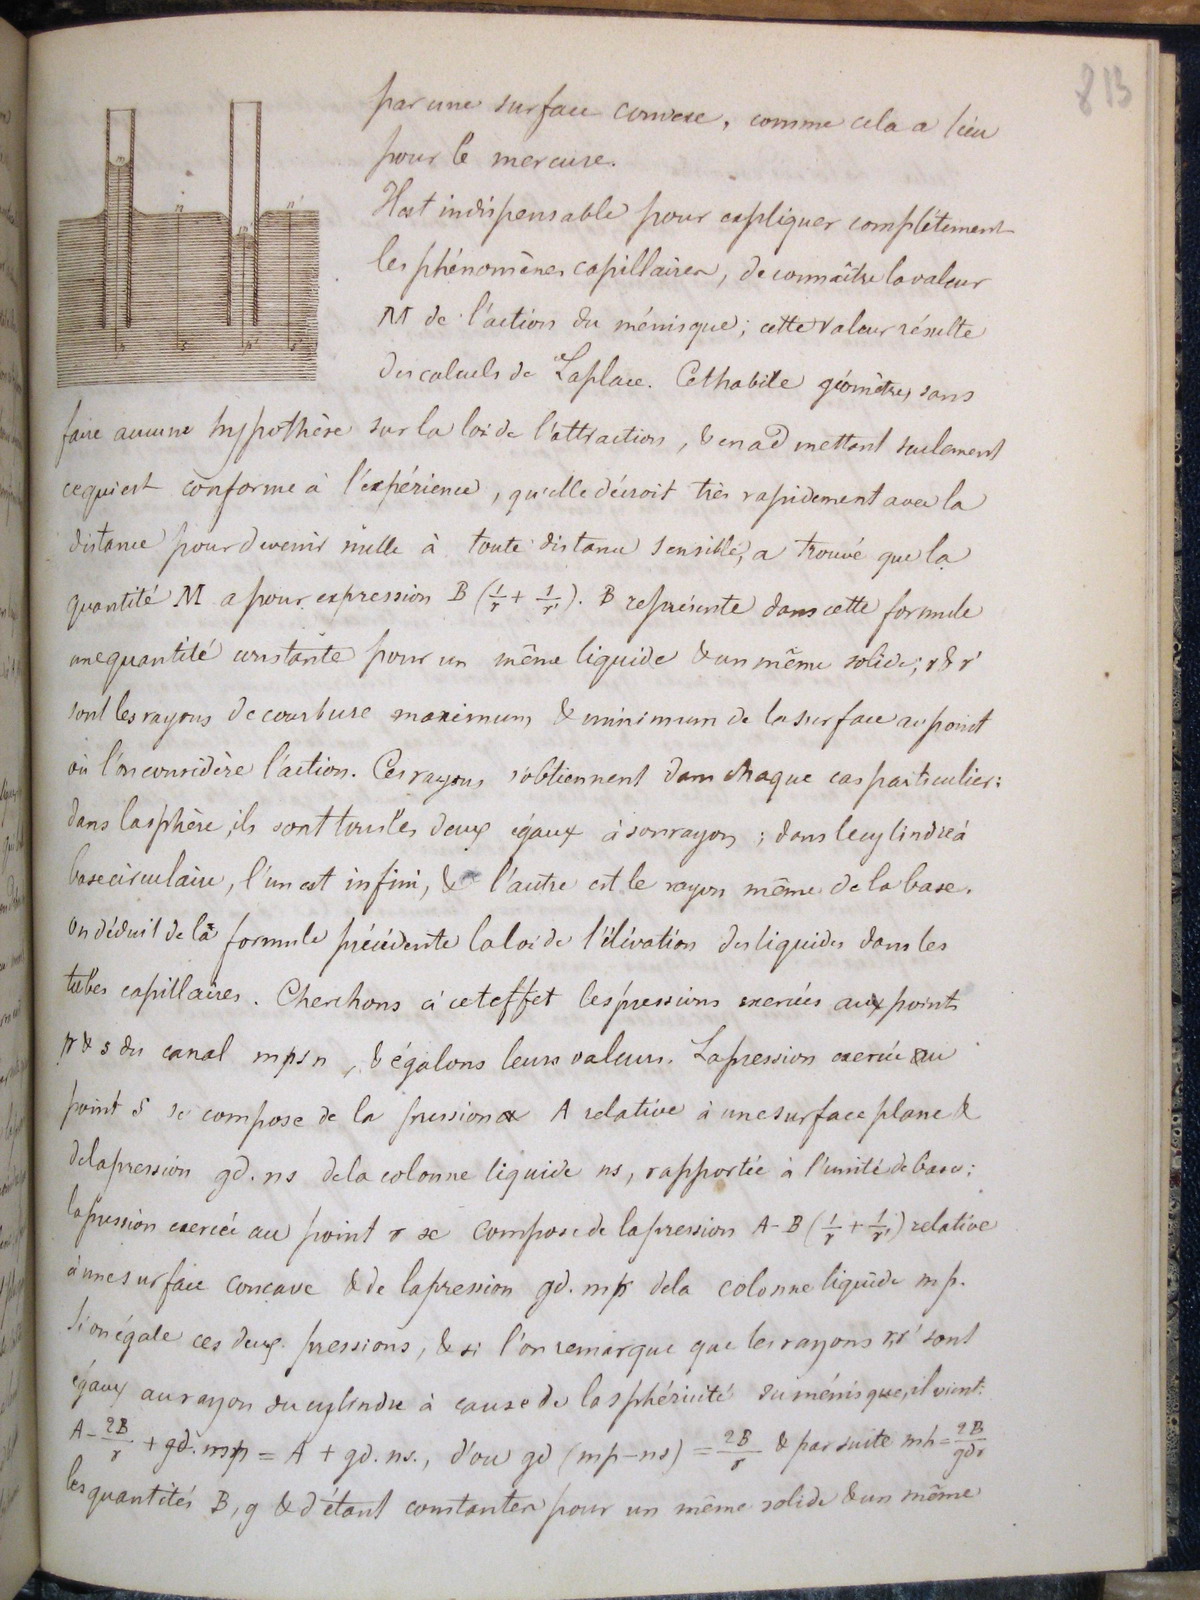 813
par une surface convexe, comme cela a lieu
pour le mercure.
Il est indispensable pour expliquer complétement
les phénomènes capillaires, de connaître la valeur
M de l'action du ménisque; cette valeur résulte
des calculs de Laplace. Cet habile géomètre, sans
faire aucune hypothèse sur la loi de l'attraction, & en admettant seulement
ce qui est conforme à l'expérience, qu'elle décroit très rapidement avec la
distance pour devenir nulle à toute distance sensible, a trouvé que la
quantité M a pour expression B (1/r + 1/r'). B représente dans cette formule
une quantité constante pour un même liquide & un même solide; r & r'
sont les rayons de courbure maximum & minimum de la surface au point
où l'on considère l'action. Ces rayons s'obtiennent dans chaque cas particulier:
dans la sphère, ils sont tous les deux égaux à son rayon; dans le cylindre à
base circulaire, l'un est infini, & l'autre est le rayon même de la base.
On déduit de la formule précédente la loi de l'élévation des liquides dans les
tubes capillaires. Cherchons à cet effet les pressions exercées aux points
p & s du canal mpsn, & égalons leurs valeurs. La pression exercée au
point s se compose de la pression A relative à une surface plane &
de la pression gd. ns de la colonne liquide ns, rapportée à l'unité de base;
la pression exercée au point r se compose de la pression A - B (1/r + 1/r') relative
à une surface concave & de la pression gd. mp de la colonne liquide mp.
Si on égale ces deux pressions, & si l'on remarque que les rayons r, r' sont
égaux au rayon du cylindre à cause de la sphéricité du ménisque, il vient:
A - 2B/r + gd. mp = A + gd. ns., d'ou gd (mp - ns) = 2B/r & par suite mh = 2B/gdr
les quantités B, g & d étant constantes pour un même solide & un même